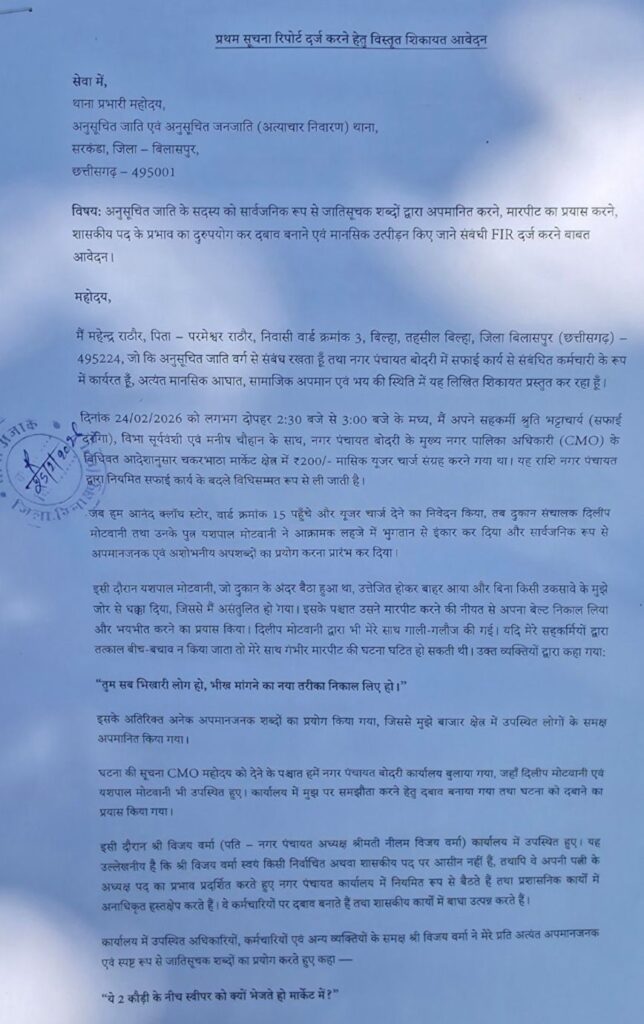 प्रथम सूचना रिपोर्ट दर्ज करने हेतु विस्तृत शिकायत आवेदन
सेवा में,
थाना प्रभारी महोदय,
अनुसूचित जाति एवं अनुसूचित जनजाति (अत्याचार निवारण) थाना,
सरकंडा, जिला – बिलासपुर,
छत्तीसगढ़ – 495001
विषय: अनुसूचित जाति के सदस्य को सार्वजनिक रूप से जातिसूचक शब्दों द्वारा अपमानित करने, मारपीट का प्रयास करने,
शासकीय पद के प्रभाव का दुरुपयोग कर दबाव बनाने एवं मानसिक उत्पीड़न किए जाने संबंधी FIR दर्ज करने बाबत
आवेदन।
महोदय,
मैं महेन्द्र राठौर, पिता – परमेश्वर राठौर, निवासी वार्ड क्रमांक 3, बिल्हा, तहसील बिल्हा, जिला बिलासपुर (छत्तीसगढ़) –
495224, जो कि अनुसूचित जाति वर्ग से संबंध रखता हूँ तथा नगर पंचायत बोदरी में सफाई कार्य से संबंधित कर्मचारी के रूप
में कार्यरत हूँ, अत्यंत मानसिक आघात, सामाजिक अपमान एवं भय की स्थिति में यह लिखित शिकायत प्रस्तुत कर रहा हूँ।
दिनांक 24/02/2026 को लगभग दोपहर 2:30 बजे से 3:00 बजे के मध्य, मैं अपने सहकर्मी श्रुति भट्टाचार्य (सफाई
दरोगा), विभा सूर्यवंशी एवं मनीष चौहान के साथ, नगर पंचायत बोदरी के मुख्य नगर पालिका अधिकारी (CMO) के
विधिवत आदेशानुसार चकरभाठा मार्केट क्षेत्र में ₹200/- मासिक यूजर चार्ज संग्रह करने गया था। यह राशि नगर पंचायत
द्वारा नियमित सफाई कार्य के बदले विधिसम्मत रूप से ली जाती है।
जब हम आनंद क्लॉथ स्टोर, वार्ड क्रमांक 15 पहुँचे और यूजर चार्ज देने का निवेदन किया, तब दुकान संचालक दिलीप
मोटवानी तथा उनके पुत्र यशपाल मोटवानी ने आक्रामक लहजे में भुगतान से इंकार कर दिया और सार्वजनिक रूप से
अपमानजनक एवं अशोभनीय अपशब्दों का प्रयोग करना प्रारंभ कर दिया।
इसी दौरान यशपाल मोटवानी, जो दुकान के अंदर बैठा हुआ था, उत्तेजित होकर बाहर आया और बिना किसी उकसावे के मुझे
जोर से धक्का दिया, जिससे मैं असंतुलित हो गया। इसके पश्चात उसने मारपीट करने की नीयत से अपना बेल्ट निकाल लिया
और भयभीत करने का प्रयास किया। दिलीप मोटवानी द्वारा भी मेरे साथ गाली-गलौज की गई। यदि मेरे सहकर्मियों द्वारा
तत्काल बीच-बचाव न किया जाता तो मेरे साथ गंभीर मारपीट की घटना घटित हो सकती थी। उक्त व्यक्तियों द्वारा कहा गया:
“तुम सब भिखारी लोग हो, भीख मांगने का नया तरीका निकाल लिए हो।”
इसके अतिरिक्त अनेक अपमानजनक शब्दों का प्रयोग किया गया, जिससे मुझे बाजार क्षेत्र में उपस्थित लोगों के समक्ष
अपमानित किया गया।
घटना की सूचना CMO महोदय को देने के पश्चात हमें नगर पंचायत बोदरी कार्यालय बुलाया गया, जहाँ दिलीप मोटवानी एवं
यशपाल मोटवानी भी उपस्थित हुए। कार्यालय में मुझ पर समझौता करने हेतु दबाव बनाया गया तथा घटना को दबाने का
प्रयास किया गया।
इसी दौरान श्री विजय वर्मा (पति – नगर पंचायत अध्यक्ष श्रीमती नीलम विजय वर्मा) कार्यालय में उपस्थित हुए। यह
उल्लेखनीय है कि श्री विजय वर्मा स्वयं किसी निर्वाचित अथवा शासकीय पद पर आसीन नहीं हैं, तथापि वे अपनी पत्नी के
अध्यक्ष पद का प्रभाव प्रदर्शित करते हुए नगर पंचायत कार्यालय में नियमित रूप से बैठते हैं तथा प्रशासनिक कार्यों में
अनाधिकृत हस्तक्षेप करते हैं। वे कर्मचारियों पर दबाव बनाते हैं तथा शासकीय कार्यों में बाधा उत्पन्न करते हैं।
कार्यालय में उपस्थित अधिकारियों, कर्मचारियों एवं अन्य व्यक्तियों के समक्ष श्री विजय वर्मा ने मेरे प्रति अत्यंत अपमानजनक
एवं स्पष्ट रूप से जातिसूचक शब्दों का प्रयोग करते हुए कहा —
“ये 2 कौड़ी के नीच स्वीपर को क्यों भेजते हो मार्केट में?”